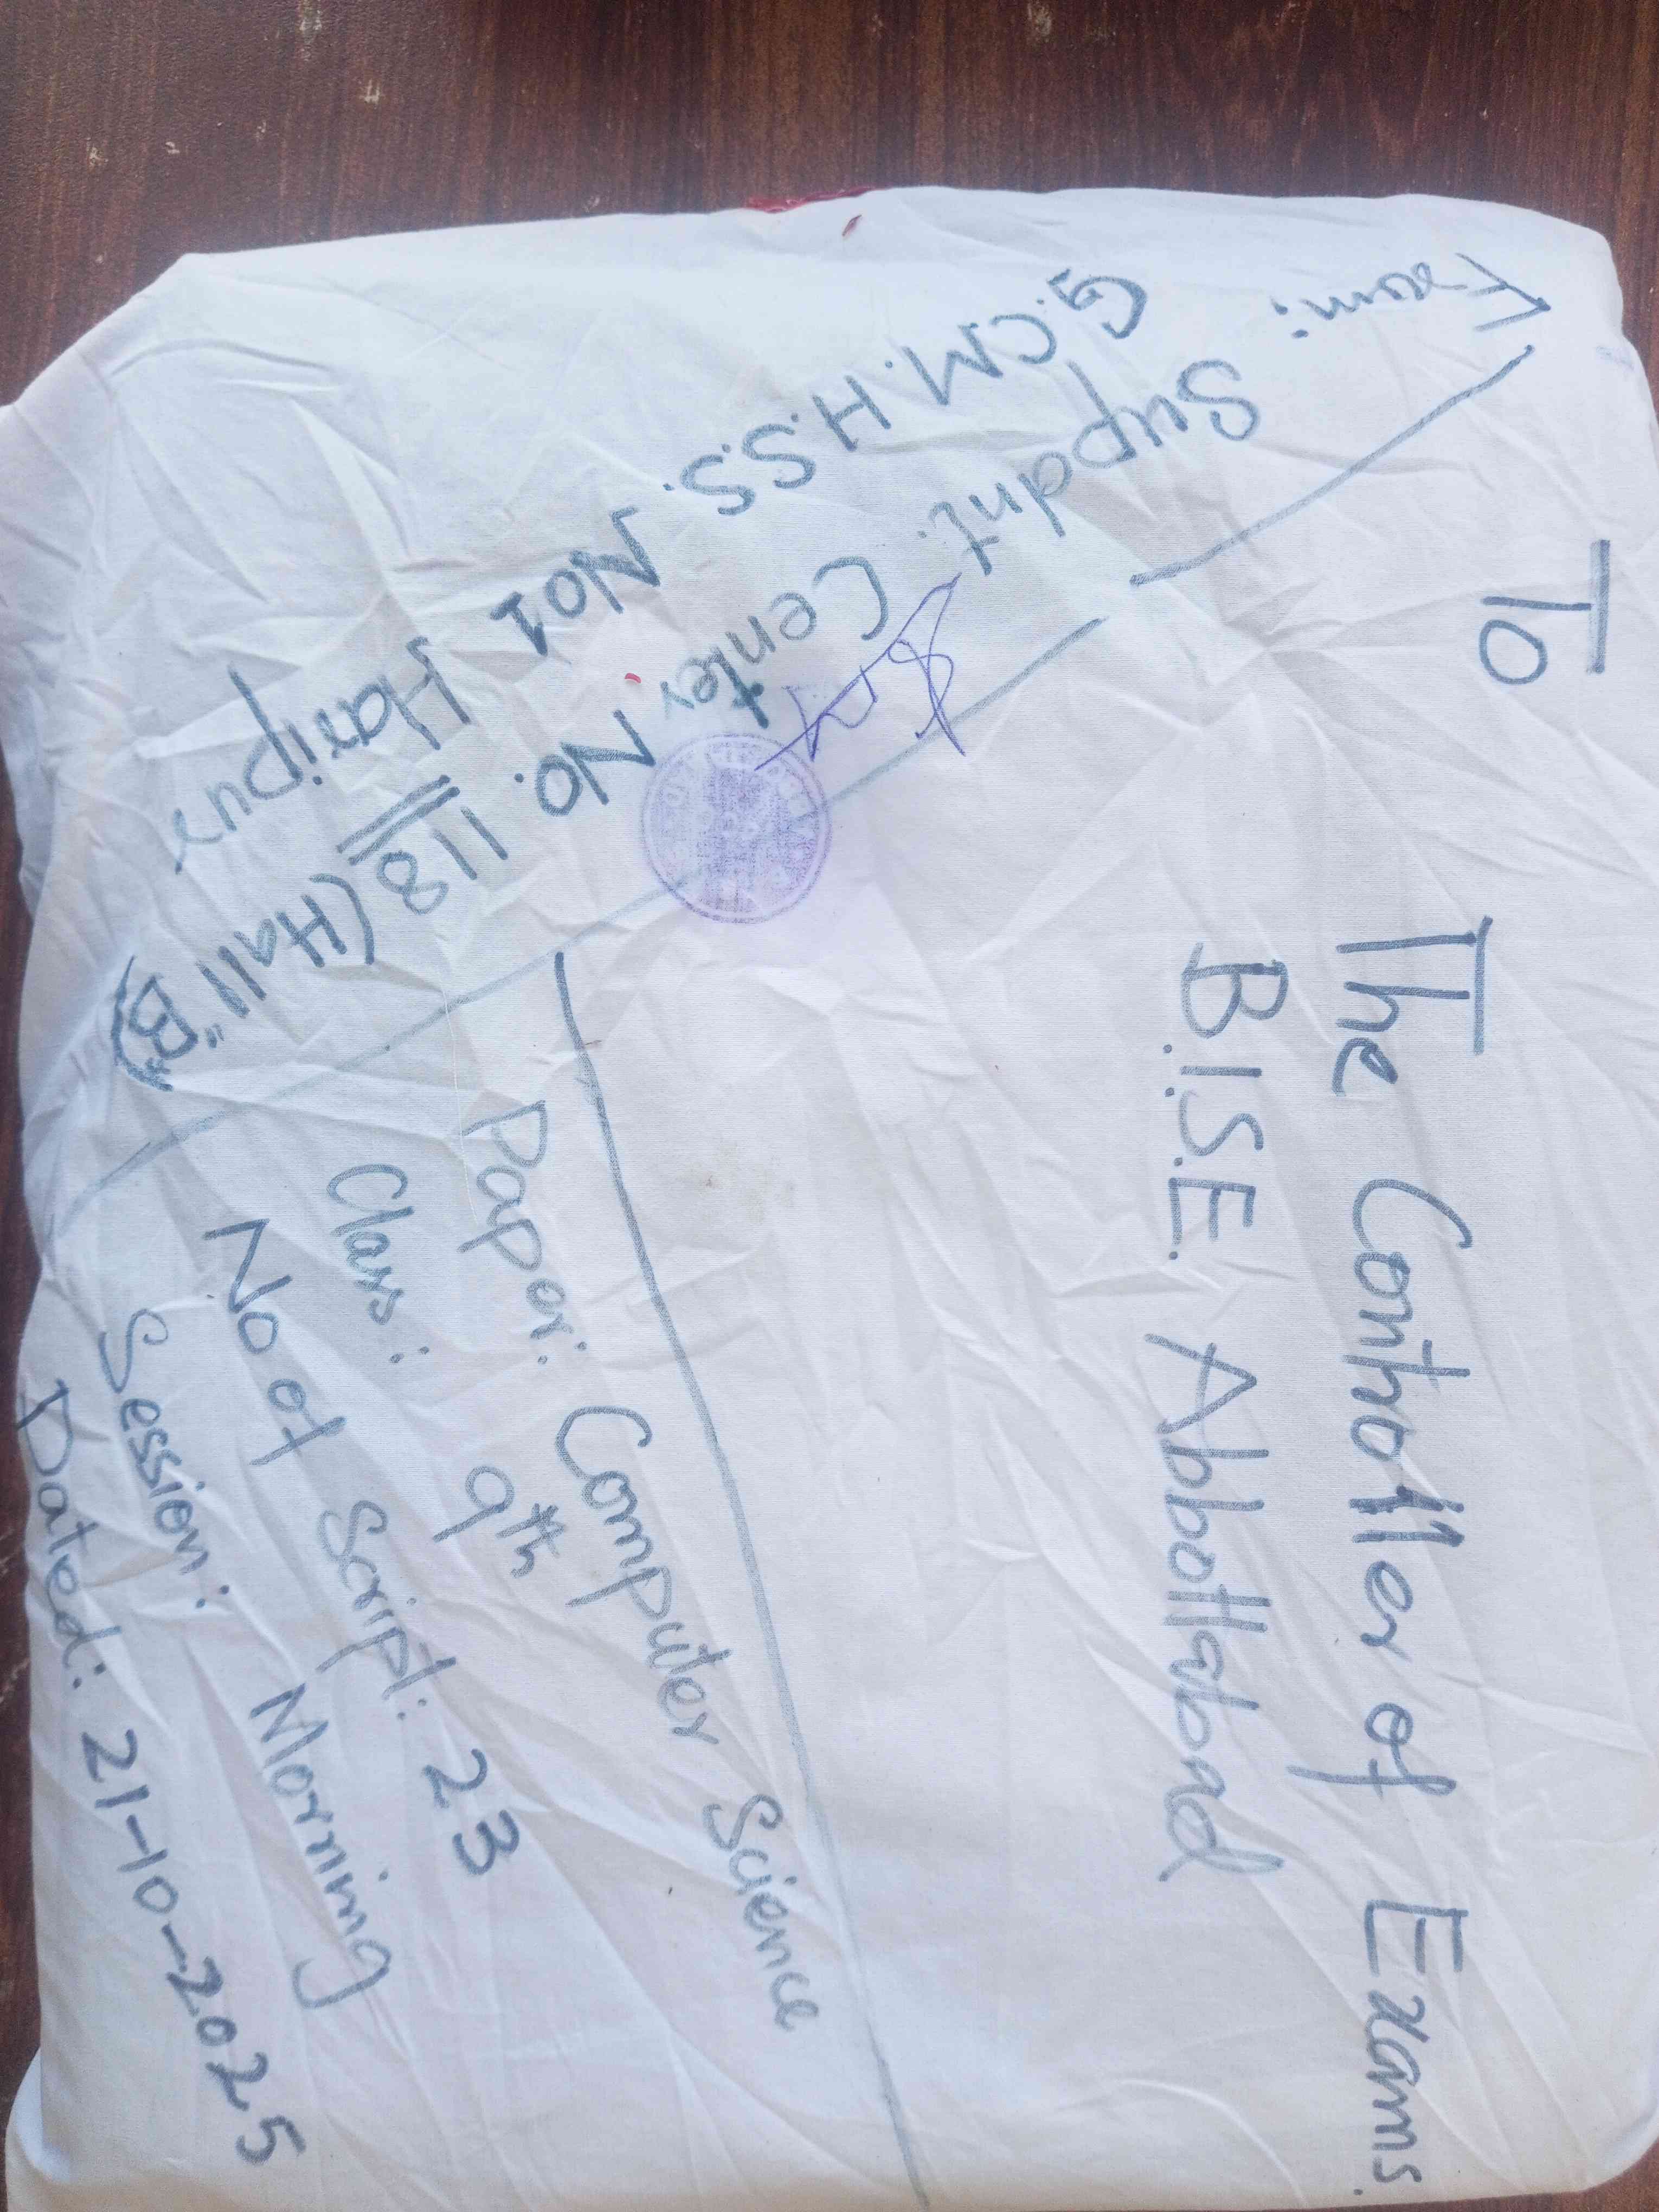 To
The Controller of Exams.
B.I.S.E. Abbottabad
From:
Supdnt.
G.C.M.H.S.S. No1 Haripur
Center No. 118 (Hall "B")
Paper: Computer Science
Class: 9th
No of Script: 23
Session: Morning
Dated: 21-10-2025